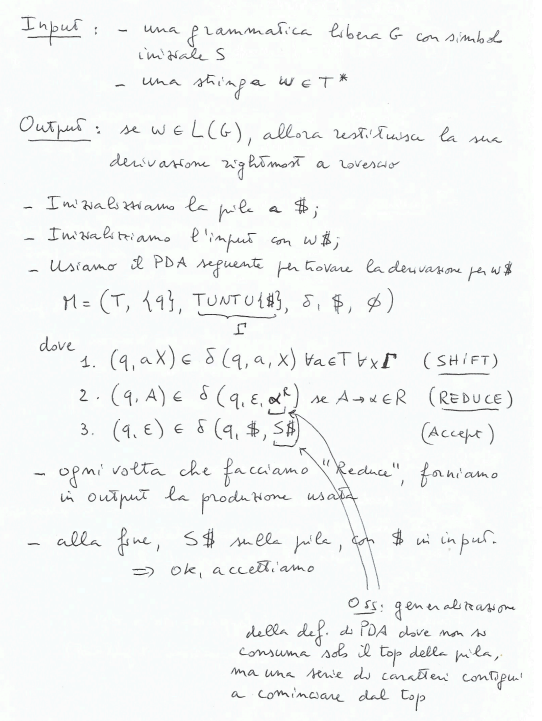 Input : - una grammatica libera G con simbolo
iniziale S
- una stringa w ∈ T*
Output : se w ∈ L(G), allora restituisce la sua
derivazione rightmost a rovescio
- Inizializziamo la pila a $;
- Inizializziamo l'input con w$;
- Usiamo il PDA seguente per trovare la derivazione per w$
M = (T, {q}, T∪NT∪{$}, δ, $, ∅)
Γ
dove
1. (q, aX) ∈ δ(q, a, X) ∀a∈T ∀X Γ (SHIFT)
2. (q, A) ∈ δ(q, ε, α^R) se A→α ∈ R (REDUCE)
3. (q, ε) ∈ δ(q, $, S$) (Accept)
- ogni volta che facciamo "Reduce", forniamo
in output la produzione usata
- alla fine, S$ sulla pila, con $ in input.
⇒ ok, accettiamo
Oss: generalizzazione
della def. di PDA dove non si
consuma solo il top della pila,
ma una serie di caratteri contigui
a cominciare dal top